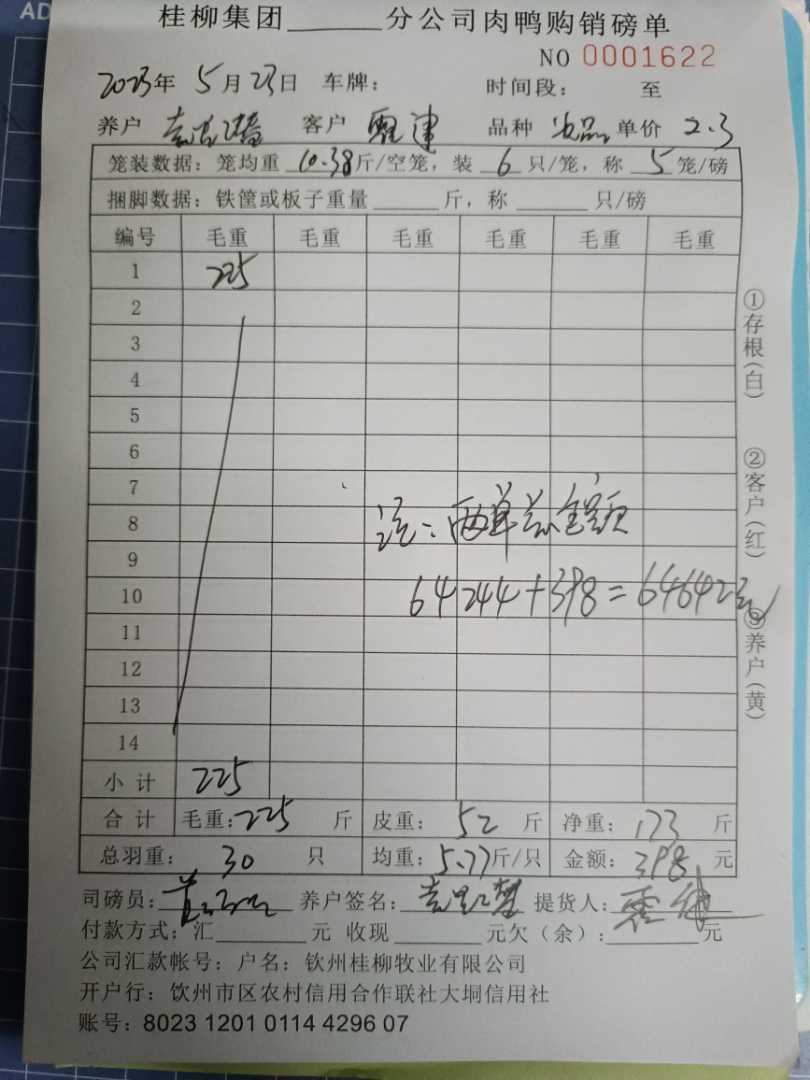 AD
桂柳集团______分公司肉鸭购销磅单
NO 0001622
2023年 5月23日 车牌： 时间段： 至
养户 客户 品种 次品 单价 2.3
笼装数据：笼均重 10.38斤/空笼，装 6 只/笼，称 5 笼/磅
捆脚数据：铁筐或板子重量______斤，称______只/磅
编号 毛重 毛重 毛重 毛重 毛重 毛重
1 225
2
3
4
5
6
7
8
9
10
11
12
13
14
注：两单总金额
64244+398=64642元
小计 225
合计 毛重：225 斤 皮重： 52 斤 净重： 173 斤
总羽重： 30 只 均重：5.77斤/只 金额：398元
司磅员： 养户签名： 提货人：
付款方式：汇______元 收现______元欠（余）：______元
公司汇款帐号：户名：钦州桂柳牧业有限公司
开户行：饮州市区农村信用合作联社大垌信用社
账号：8023 1201 0114 4296 07
①存根（白）
②客户（红）
③养户（黄）